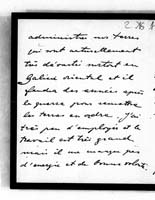 2 76
administrer nos terres
qui sont actuellement
très dévasté notent en
Galicie oriental et il
faudra des années après
la guerre pour remettre
les terres en ordre. J'ai
très peu d'employés et le
travail est très grand
mais il me manque pas
d'energie et de bonne volonté.